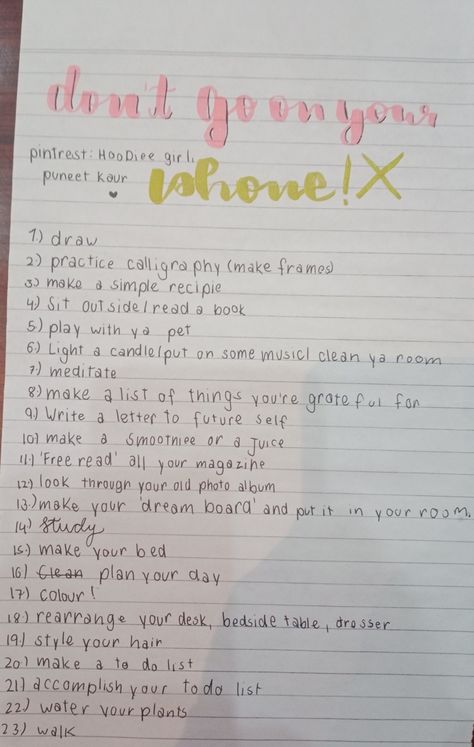 don't go on your
pintrest: HooDiee girl,
puneet kaur
phone! X
1.) draw
2) practice calligraphy (make frames)
3) make a simple recipie
4) Sit outside/read a book
5) play with ya pet
6) Light a candle/put on some music/clean ya room
7) meditate
8) make a list of things you're grateful for
9) Write a letter to future self
10) make a smoothiee or a juice
11.) 'Free read' all your magazine
12) look through your old photo album
13.) make your 'dream board' and put it in your room.
14) study
15) make your bed
16) Clean plan your day
17) colour!
18) rearrange your desk, bedside table, drosser
19) style your hair
20) make a to do list
21) accomplish your to do list
22) water your plants
23) walk